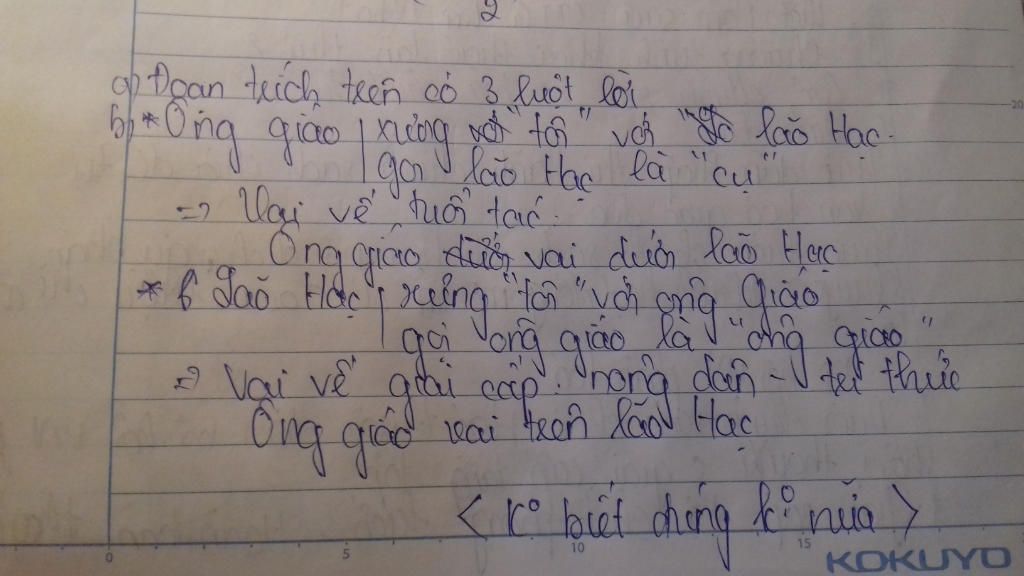 2
a) Đoạn trích trên có 3 lượt lời
b) * Ông giáo xưng với "tôi" với lão Hạc.
gọi lão Hạc là "cụ"
=> Vai về tuổi tác.
Ông giáo dưới vai dưới lão Hạc
* Lão Hạc xưng "tôi" với ông Giáo
gọi ông giáo là "ông giáo"
=> Vai về giai cấp. nông dân - tri thức
Ông giáo vai trên lão Hạc
< Kº biết đúng kº nữa >
20
0 5 10 15
KOKUYO